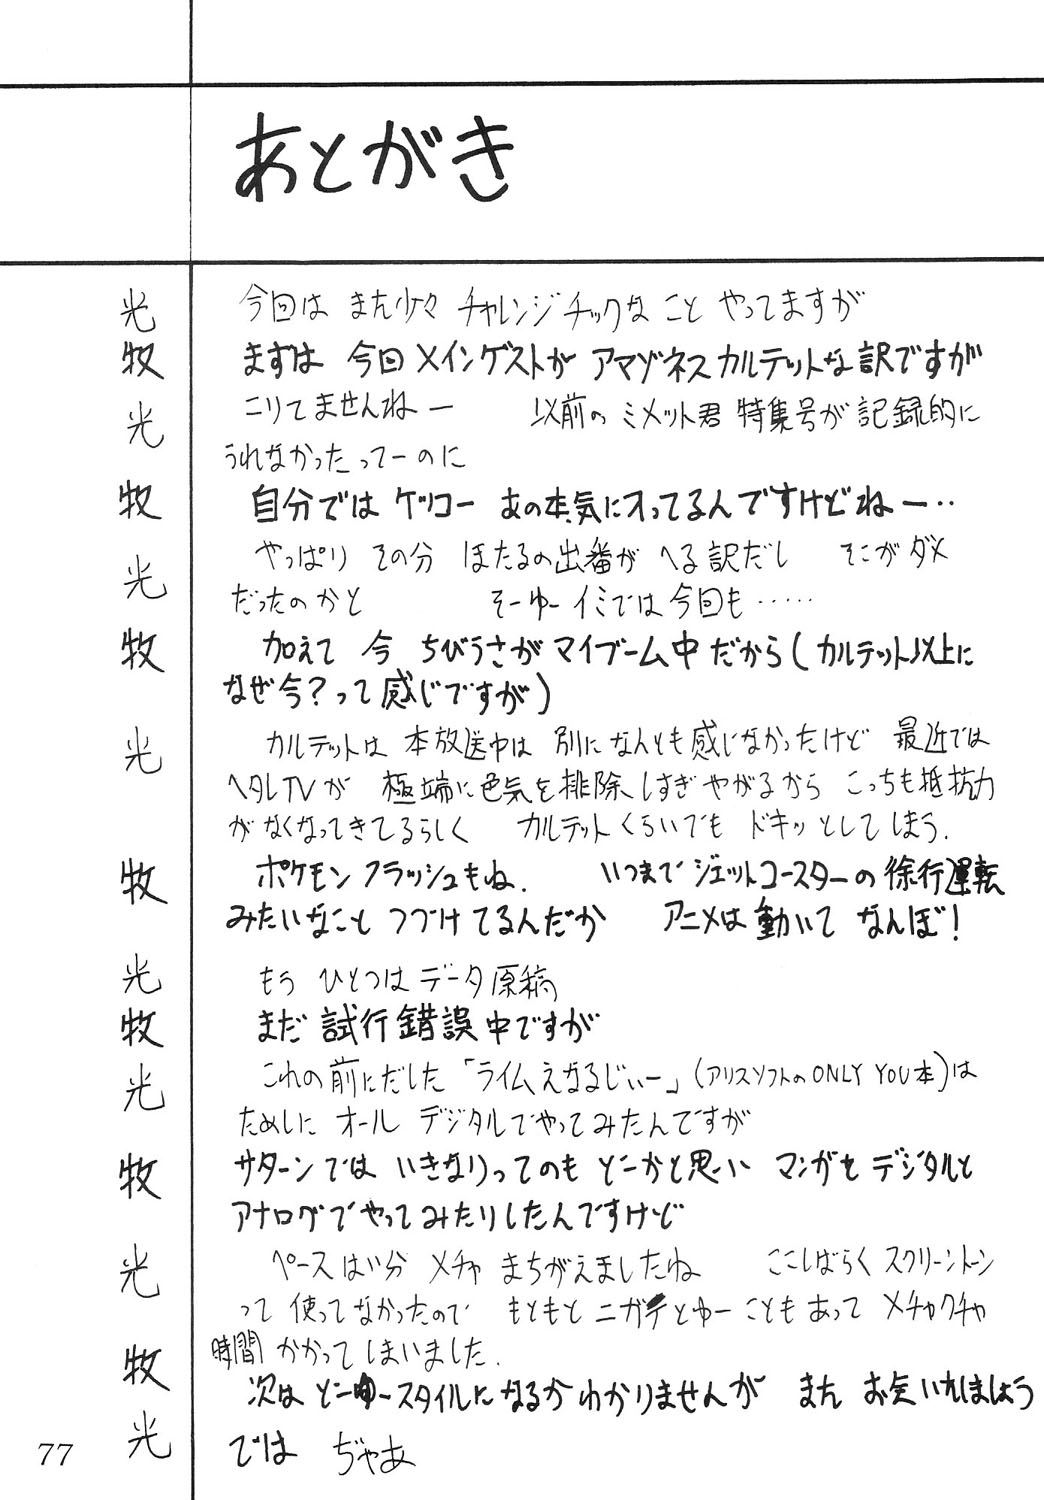 あとがき
光 今回は また少々 チャレンジチックな こと やってますが
牧 まずは 今回メインゲストが アマゾネスカルテットな訳ですが
光 こりてませんねー 以前の ミメット君 特集号が 記録的に
うれなかったってーのに
牧 自分では ケッコー あの本気に入ってるんですけどねー‥
光 やっぱり その分 ほたるの出番が へる訳だし そこがダメ
だったのかと そーゆーイミでは今回も‥‥‥
牧 加えて 今 ちびうさが マイブーム中だから(カルテット以上に
なぜ今?って感じですが)
光 カルテットは 本放送中は 別になんとも感じなかったけど 最近では
ヘタレTVが 極端に色気を排除しすぎやがるから こっちも抵抗力
がなくなってきてるらしく カルテットくらいでも ドキッとしてしまう.
牧 ポケモンフラッシュもね. いつまでジェットコースターの徐行運転
みたいなこと つづけてるんだか アニメは動いて なんぼ!
光 もう ひとつはデータ原稿
牧 まだ 試行錯誤中ですが
光 これの前にだした「ライムえなるじぃー」(アリスソフトのONLY YOU本)は
ためしに オール デジタルでやってみたんですが
牧 サターンでは いきなりってのも どーかと思い マンガをデジタルと
アナログでやってみたりしたんですけど
光 ペースはい分 メチャ まちがえましたね ここしばらくスクリーントーン
って 使ってなかったので もともと ニガテとゆーこともあって メチャクチャ
時間 かかってしまいました.
牧 次は どーゆースタイルになるかわかりませんが また お会いしましょう
光 では ぢゃあ
77